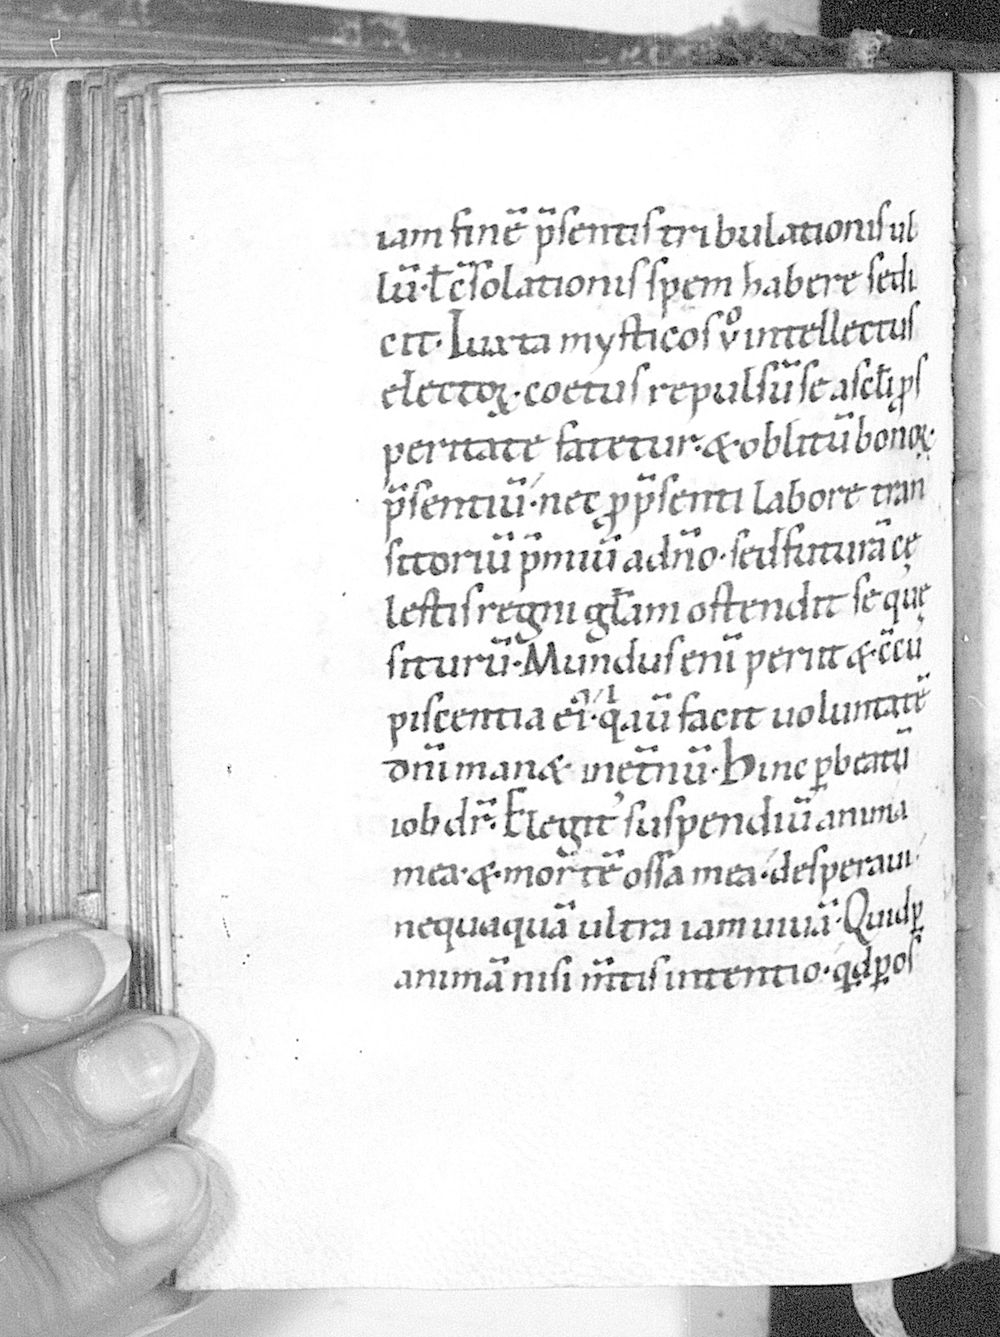 iam finē p̄sentis tribulationis ul
lū·ł c̄solationis spem habere sedi
cit· Iuxta mysticos ů intellectus
electoꝝ·coetus repulsū se a sc̄li ꝓs
peritate fatetur·&·oblitū bonoꝝ·
p̄sentiū·nec ꝓ p̄senti labore tran
sitoriū p̄miū a dño·sed futurā cę
lestis regni gl̄am ostendit se quę
siturū·Mundus eni̅ periit & c̄cu
piscentia ei·q aū facit uoluntatē
dn̄i man& inęt̄nū·Hinc ꝑ beatū
iob dr̄·Elegit suspendiū anima
mea·&·mortē ossa mea·desperaui·
nequaquā ultra iam uiuā·Quid ꝑ
animā nisi m̄tis intentio·qd ꝑ os